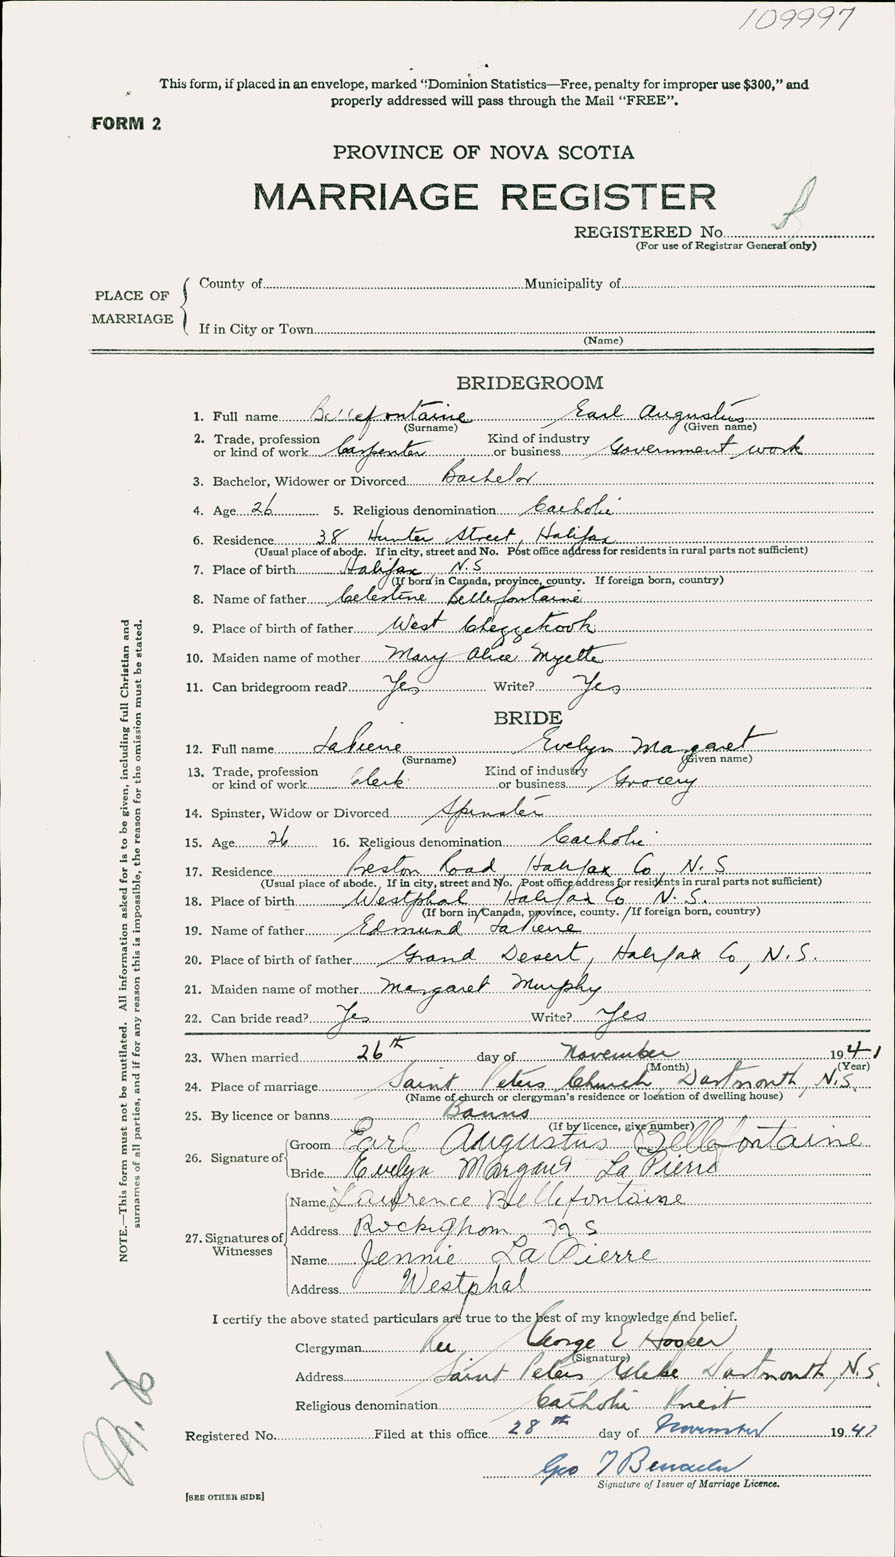 109997
This form, if placed in an envelope, marked "Dominion Statistics—Free, penalty for improper use $300," and
properly addressed will pass through the Mail "FREE".
FORM 2
PROVINCE OF NOVA SCOTIA
MARRIAGE REGISTER
REGISTERED No.
(For use of Registrar General only)
PLACE OF MARRIAGE
County of Municipality of
If in City or Town
(Name)
BRIDEGROOM
1. Full name Bellefontaine Earl Augustus
(Surname) (Given name)
2. Trade, profession or kind of work Carpenter Kind of industry or business Government work
3. Bachelor, Widower or Divorced Bachelor
4. Age 26 5. Religious denomination Catholic
6. Residence 38 Hunter Street, Halifax
(Usual place of abode. If in city, street and No. Post office address for residents in rural parts not sufficient)
7. Place of birth Halifax N.S
(If born in Canada, province, county. If foreign born, country)
8. Name of father Celestine Bellefontaine
9. Place of birth of father West Chezzetcook
10. Maiden name of mother Mary Alice Myette
11. Can bridegroom read? Yes Write? Yes
BRIDE
12. Full name LaPierre Evelyn Margaret
(Surname) (Given name)
13. Trade, profession or kind of work Clerk Kind of industry or business Grocery
14. Spinster, Widow or Divorced Spinster
15. Age 26 16. Religious denomination Catholic
17. Residence Preston Road, Halifax Co, N.S
(Usual place of abode. If in city, street and No. Post office address for residents in rural parts not sufficient)
18. Place of birth Westphal Halifax Co N.S.
(If born in Canada, province, county. If foreign born, country)
19. Name of father Edmund LaPierre
20. Place of birth of father Grand Desert, Halifax Co, N.S.
21. Maiden name of mother Margaret Murphy
22. Can bride read? Yes Write? Yes
23. When married 26th day of November 1941
(Month) (Year)
24. Place of marriage Saint Peters Church, Dartmouth, N.S.
(Name of church or clergyman's residence or location of dwelling house)
25. By licence or banns Banns
(If by licence, give number)
26. Signature of
Groom Earl Augustus Bellefontaine
Bride Evelyn Margaret La Pierre
27. Signatures of Witnesses
Name Lawrence Bellefontaine
Address Rockinghom N S
Name Jennie La Pierre
Address Westphal
I certify the above stated particulars are true to the best of my knowledge and belief.
Clergyman Rev George E Hooper
(Signature)
Address Saint Peters Glebe Dartmouth, N.S.
Religious denomination Catholic Priest
Registered No. Filed at this office 28th day of November 194
Geo
Signature of Issuer of Marriage Licence.
[SEE OTHER SIDE]
NOTE.—This form must not be mutilated. All information asked for is to be given, including full Christian and
surnames of all parties, and if for any reason this is impossible, the reason for the omission must be stated.